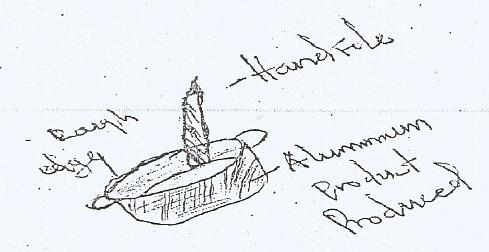 Hand File
Rough
edge
Aluminium
Product
Produced